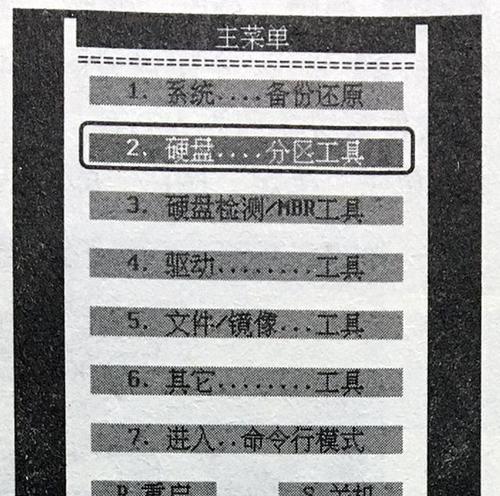 主菜单
1. 系统....备份还原
2. 硬盘....分区工具
3. 硬盘检测/MBR工具
4. 驱动........工具
5. 文件/镜像...工具
6. 其它........工具
7. 进入..命令行模式
R.重启 S.关机